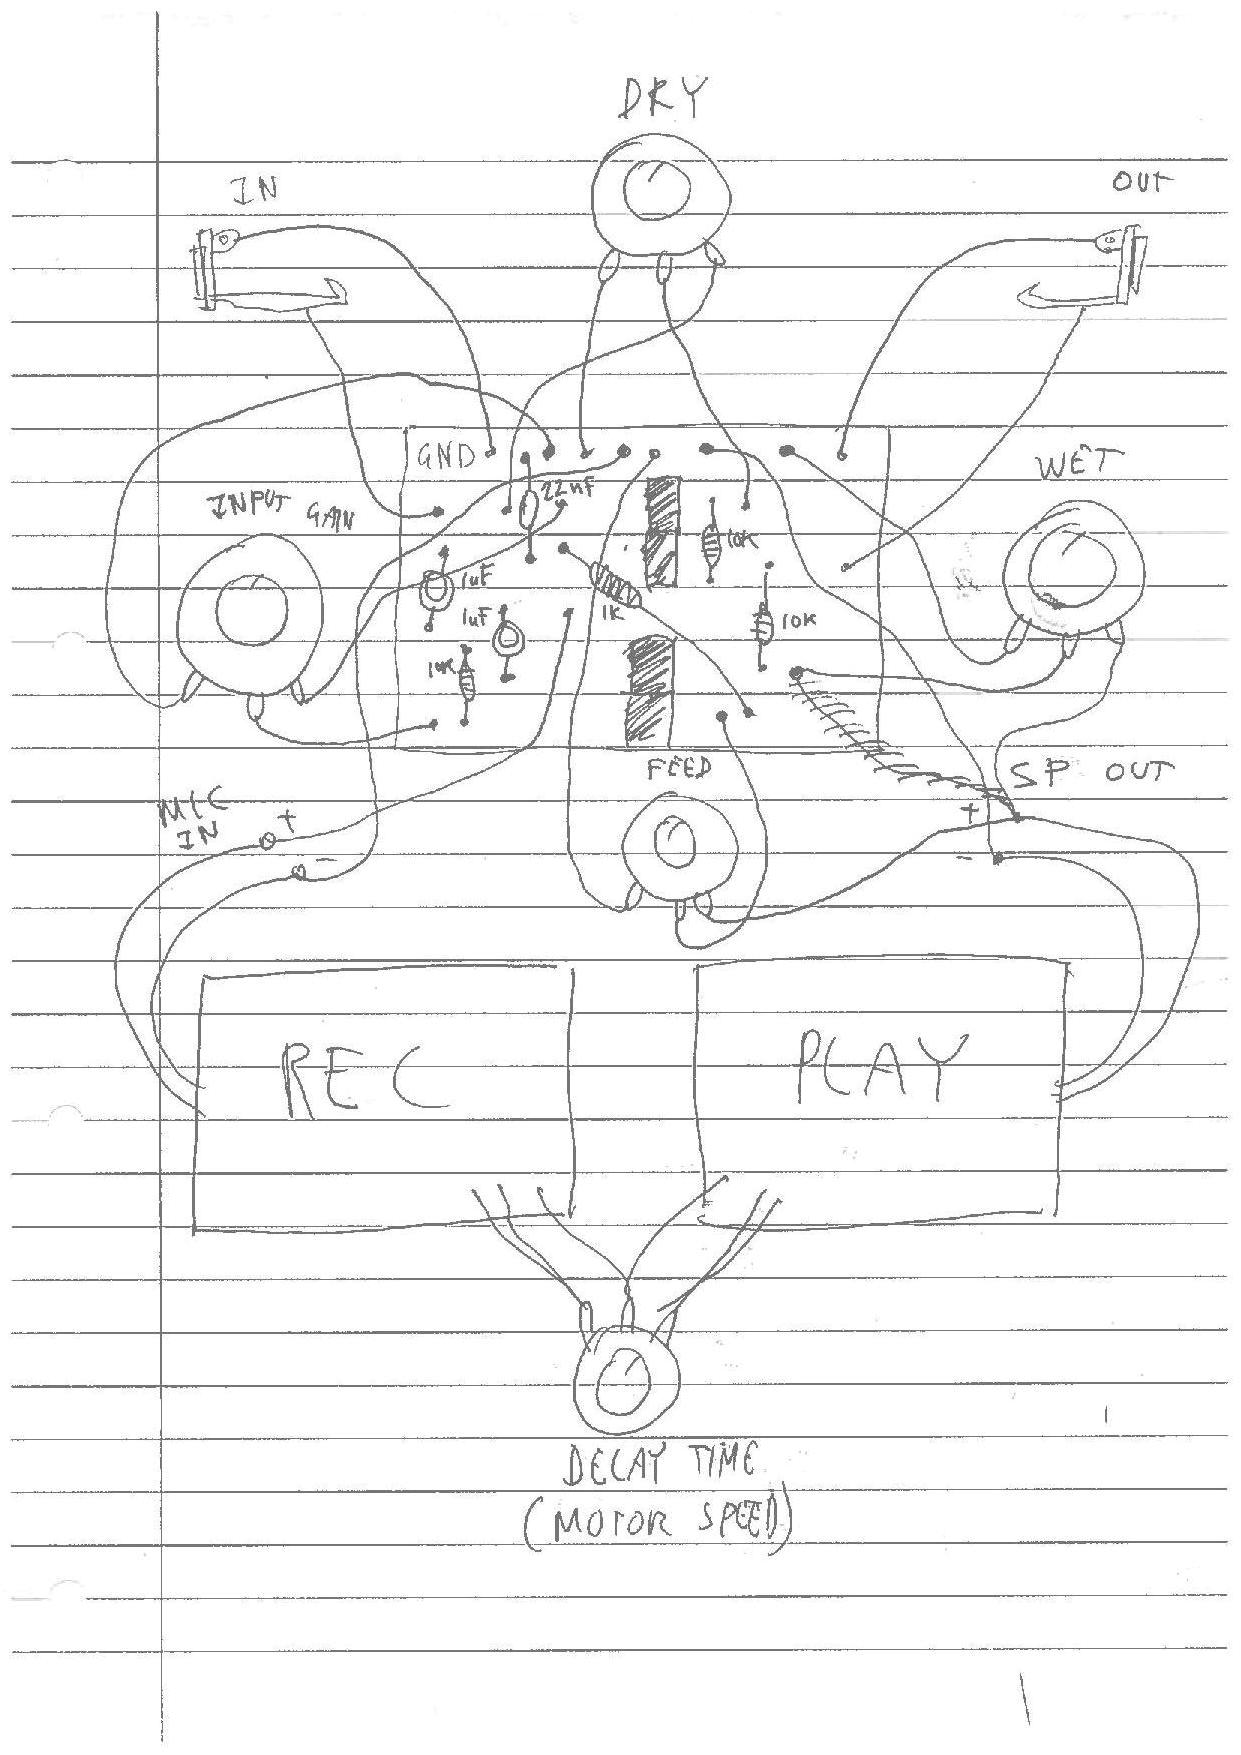 DRY
IN
OUT
GND
WET
INPUT GAIN
22nF
10K
1uF
1uF
1K
10K
10K
FEED
SP OUT
MIC
IN
+
-
+
-
REC
PLAY
DECAY TIME
(MOTOR SPEED)